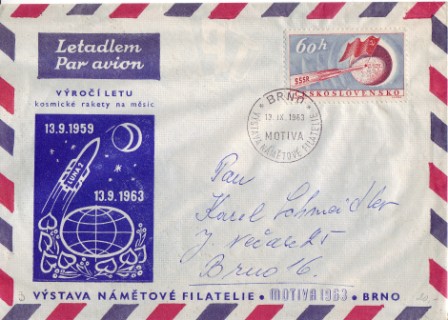 Letadlem
Par avion
VÝROČÍ LETU
kosmické rakety na měsíc
13.9.1959
LUNA 2
13.9.1963
60h
SSSR
ČESKOSLOVENSKO
BRNO
13. IX. 1963
MOTIVA
VÝSTAVA NÁMĚTOVÉ FILATELIE
Pan
Karel Schneidler
J. Nečaleší
Brno 16.
VÝSTAVA NÁMĚTOVÉ FILATELIE • MOTIVA 1963 • BRNO